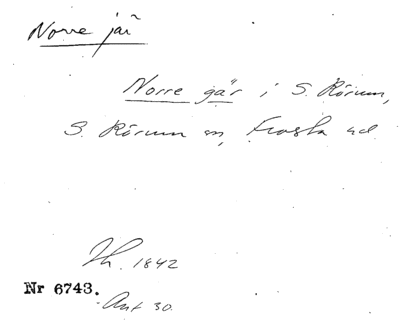 Norre jär
Norre går i S. Rörum,
S. Rörum sn, Frosta hd
Th. 1842
Nr 6743.
Ant 30.